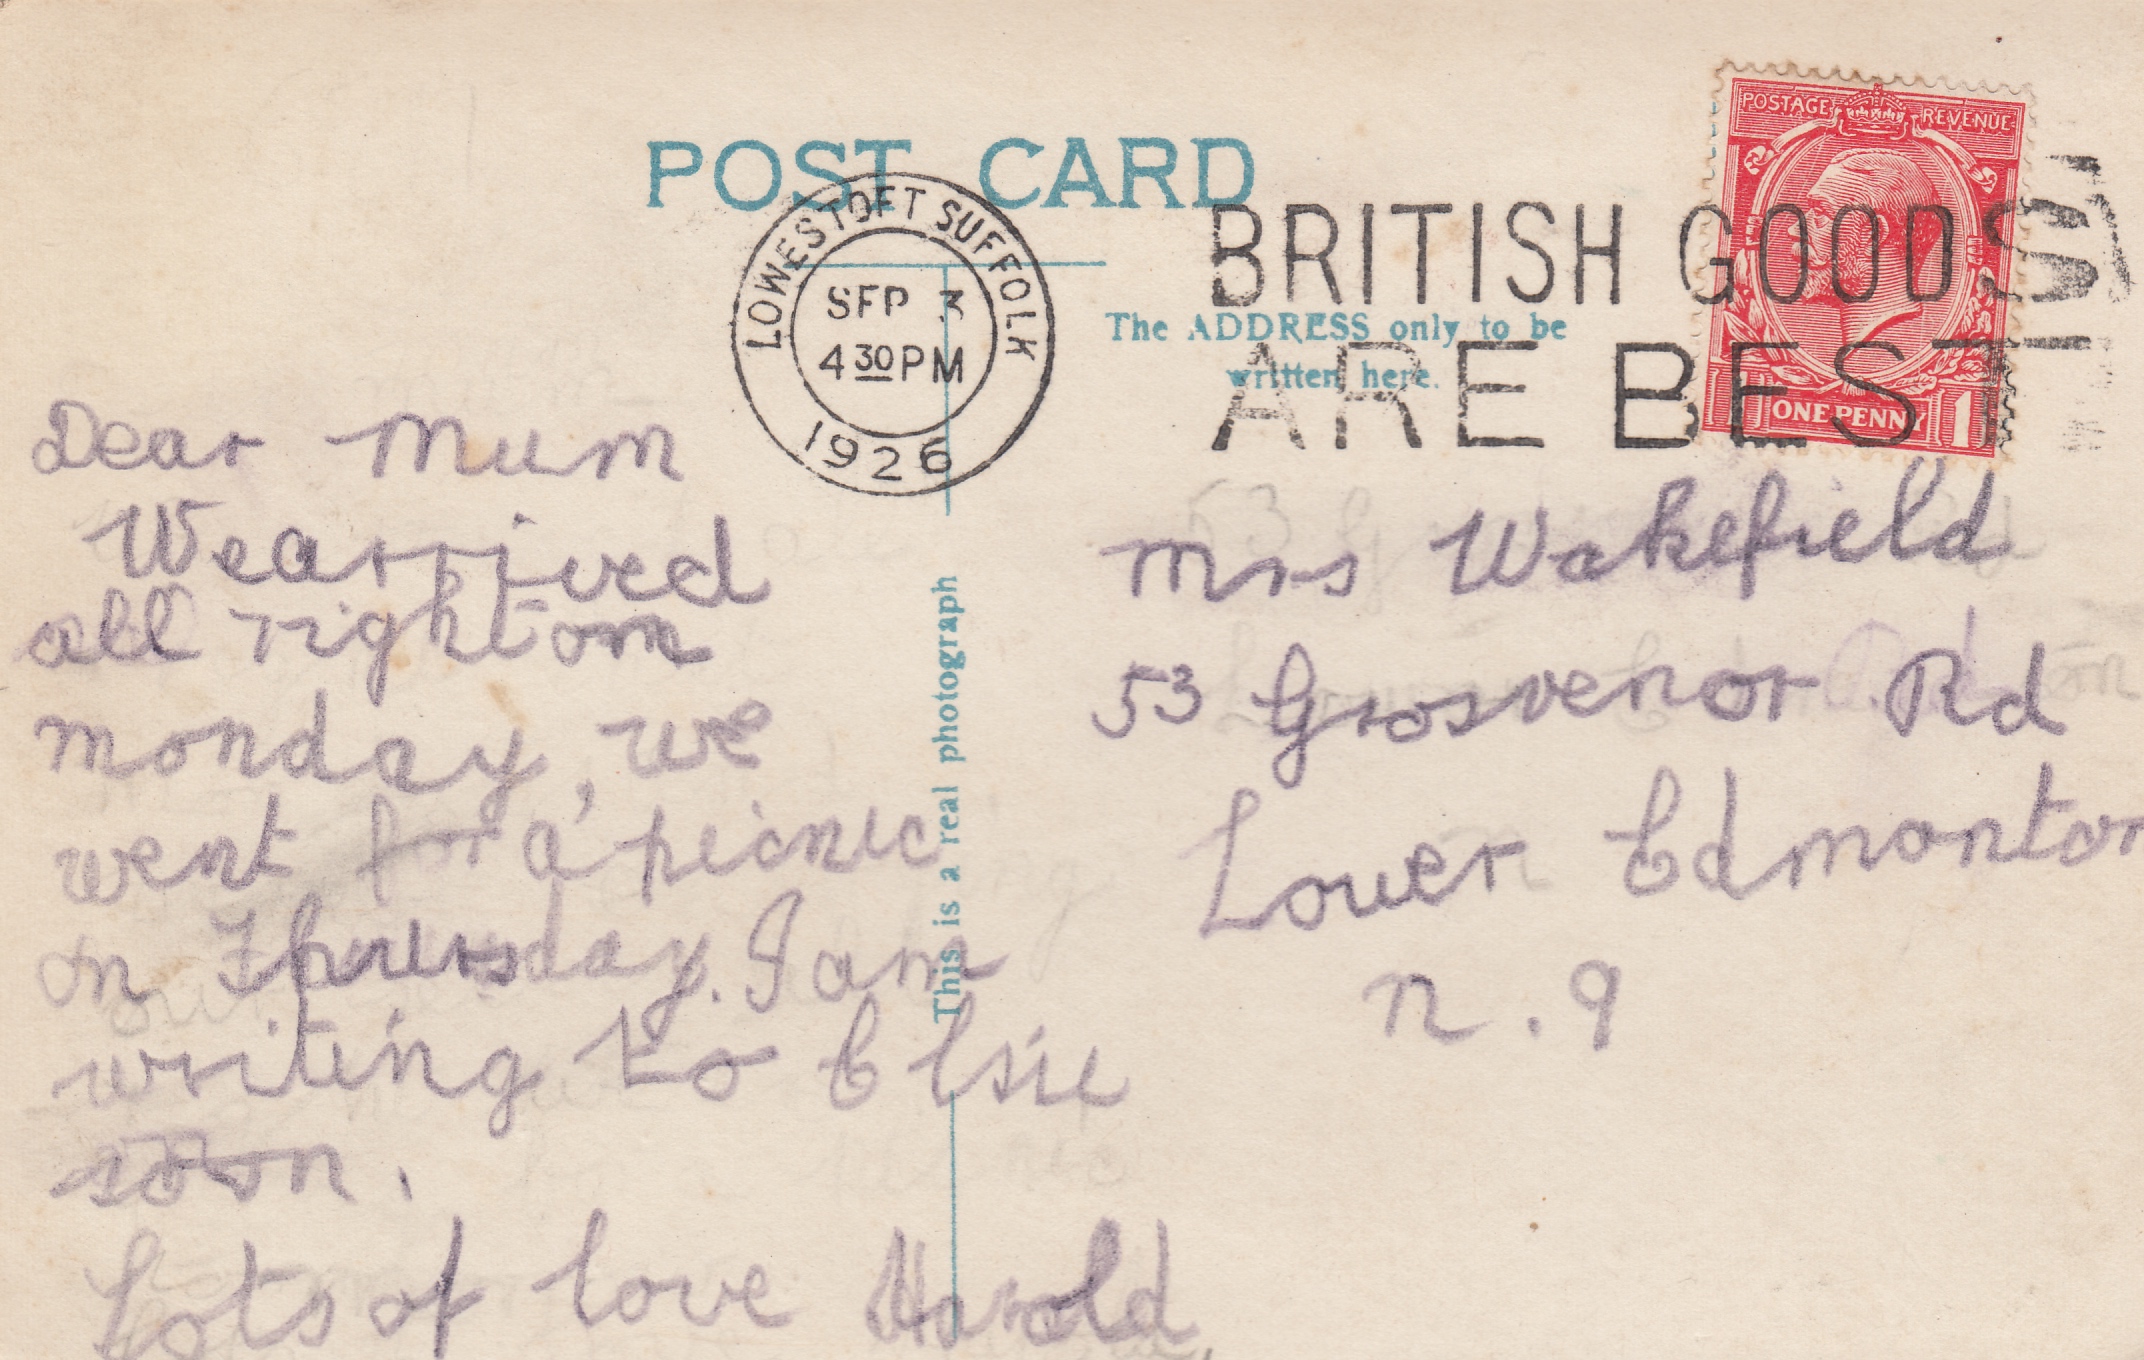 POST CARD
LOWESTOFT SUFFOLK
SEP 3
4 30 PM
1926
BRITISH GOODS
ARE BEST
POSTAGE REVENUE
ONE PENNY 1
The ADDRESS only to be
written here.
This is a real photograph
Dear Mum
We arrived
all right on
monday, we
went for a picnic
on Thursday. I am
writing to Elsie
soon.
Lots of love Harold.
Mrs Wakefield
53 Grosvenor Rd
Lower Edmonton
N. 9